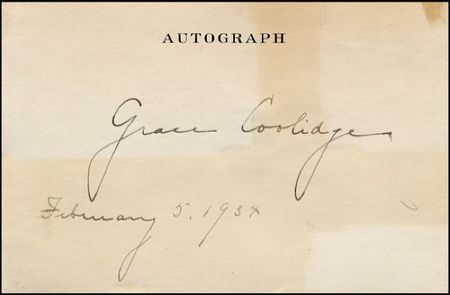 AUTOGRAPH
Grace Coolidge
February 5, 1934